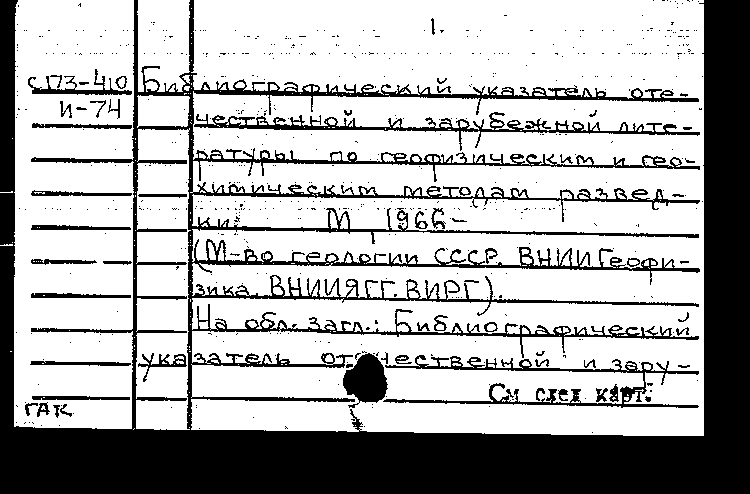 1.
СП3-410 Библиографический указатель оте-
И-74 чественной и зарубежной лите-
ратуры по геофизическим и гео-
химическим методам развед-
ки. М, 1966-
(М-во геологии СССР. ВНИИГеофи-
зика. ВНИИЯГГ. ВИРГ).
На обл. загл.: Библиографический
указатель отечественной и зару-
См след карт.
ГАК